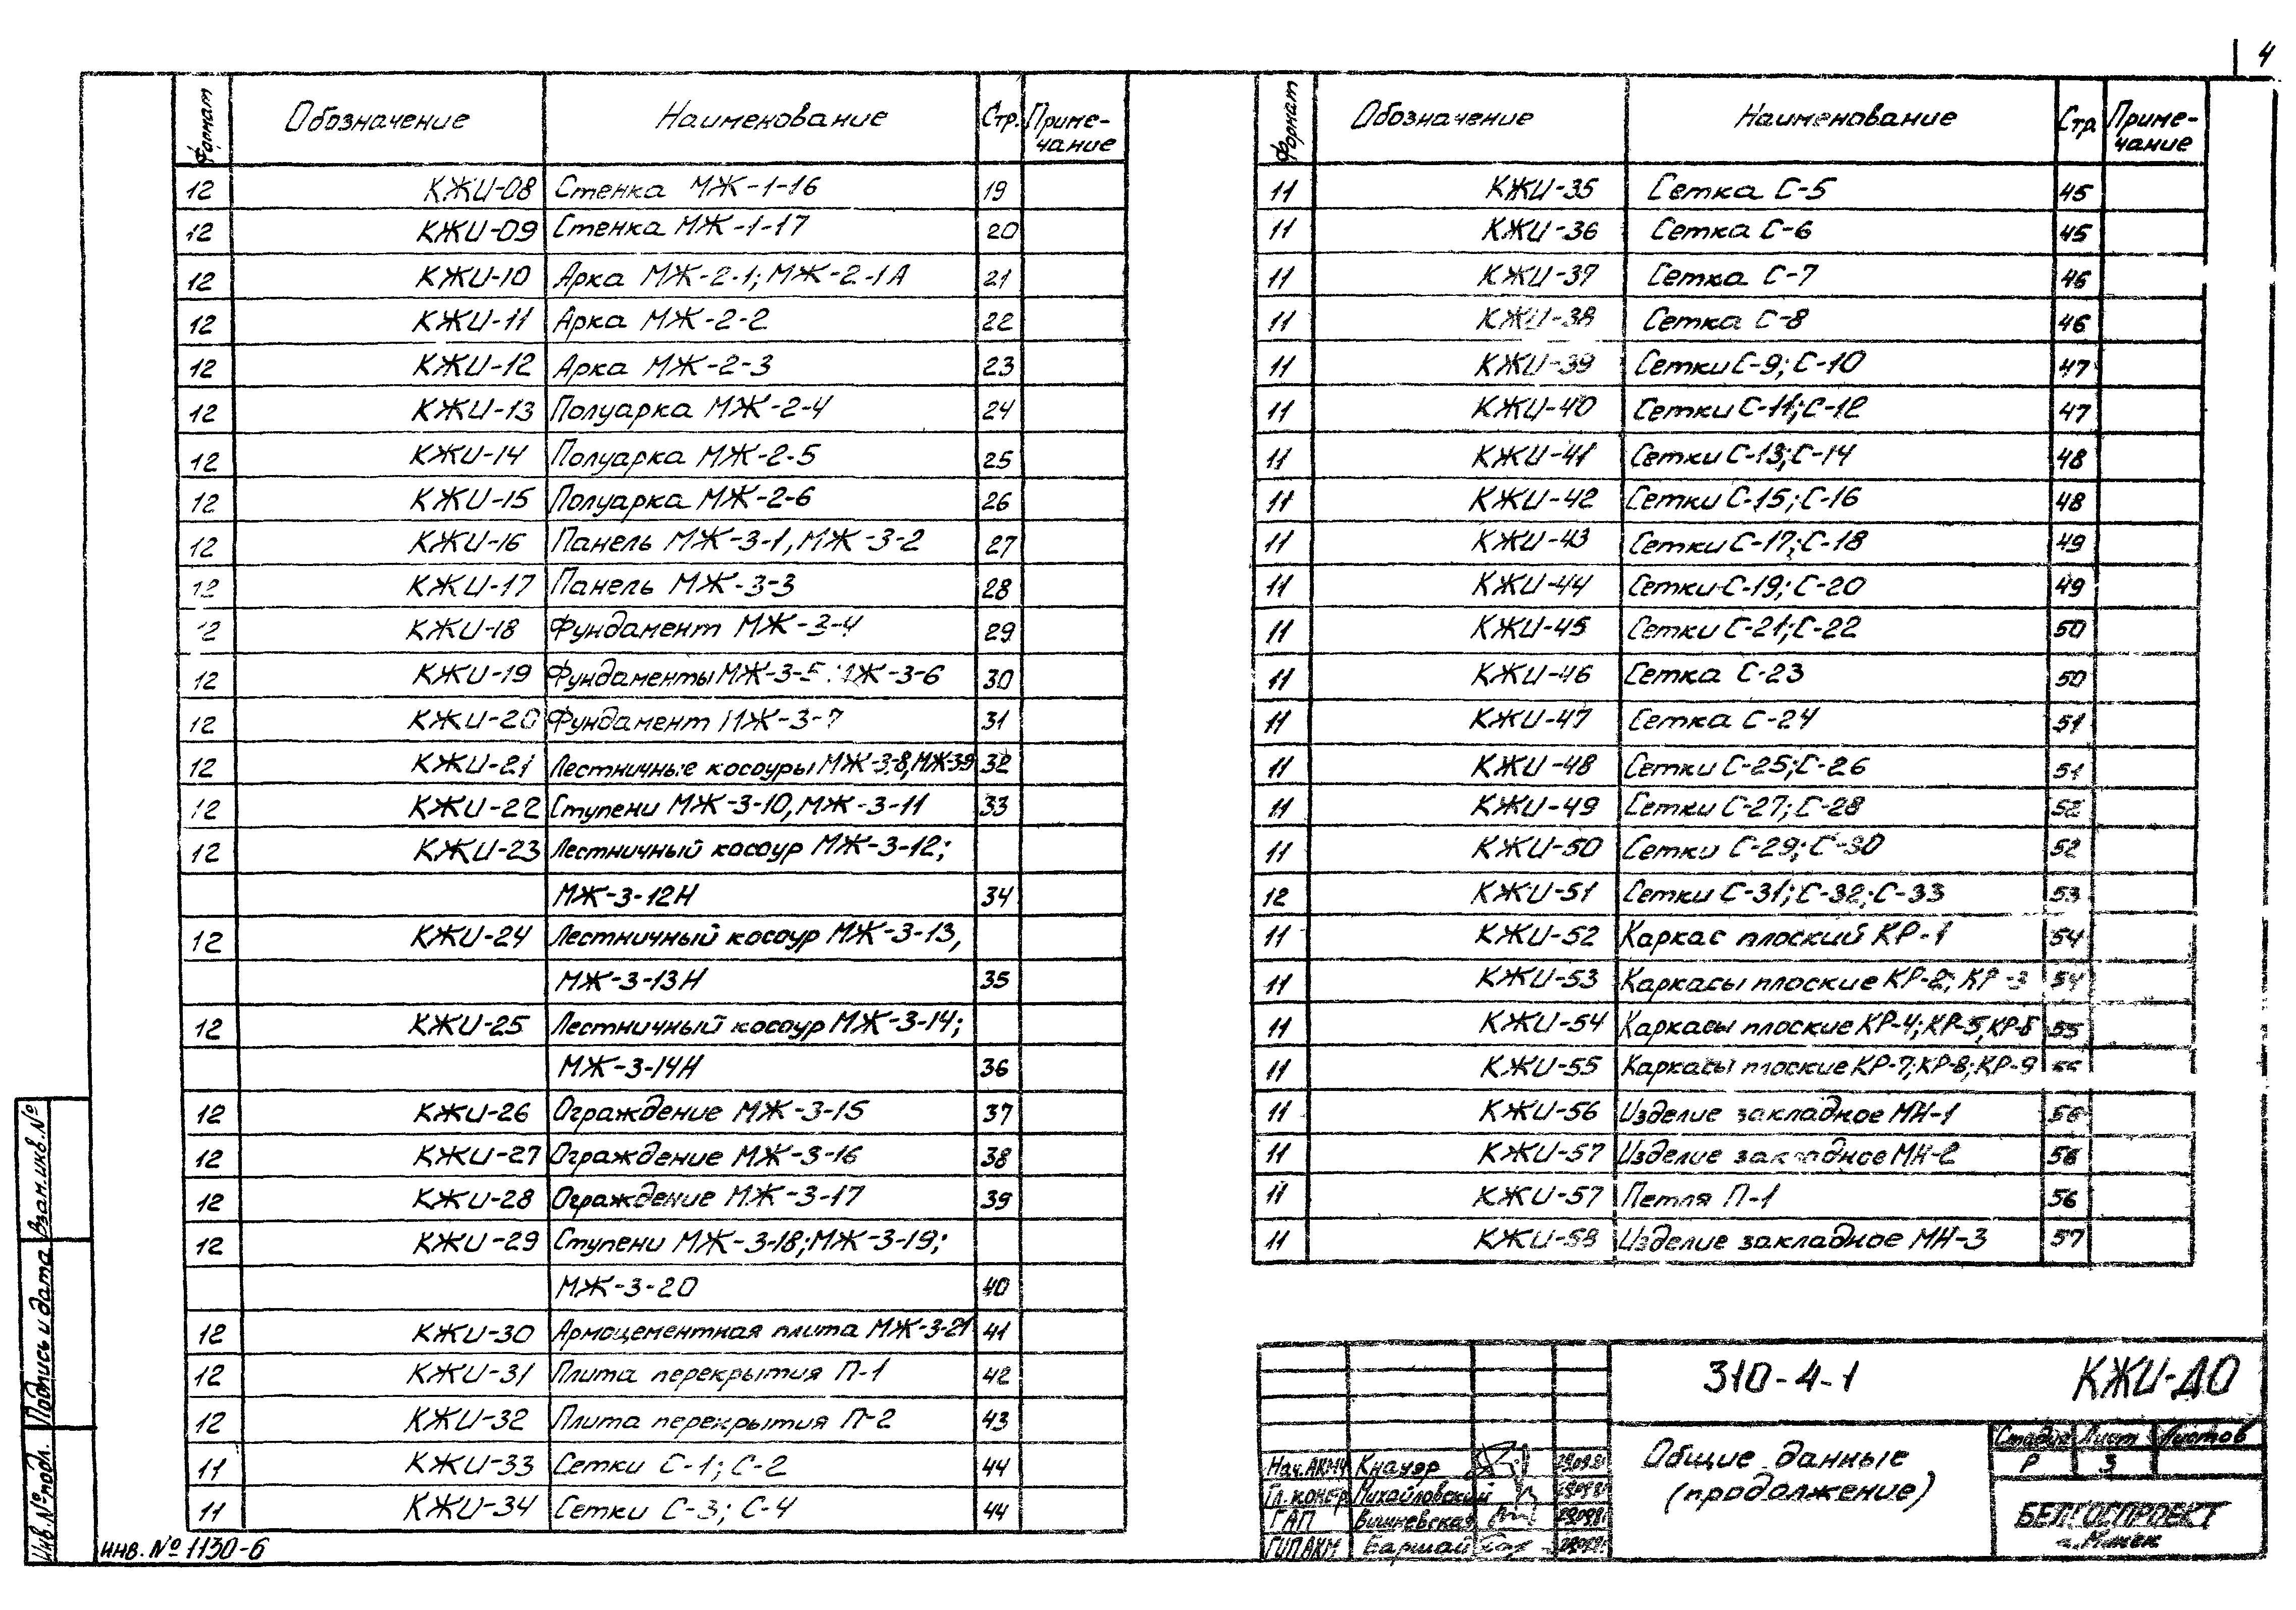 4
Формат Обозначение Наименование Стр. Приме-чание
12 КЖИ-08 Стенка МЖ-1-16 19
12 КЖИ-09 Стенка МЖ-1-17 20
12 КЖИ-10 Арка МЖ-2-1; МЖ-2-1А 21
12 КЖИ-11 Арка МЖ-2-2 22
12 КЖИ-12 Арка МЖ-2-3 23
12 КЖИ-13 Полуарка МЖ-2-4 24
12 КЖИ-14 Полуарка МЖ-2-5 25
12 КЖИ-15 Полуарка МЖ-2-6 26
12 КЖИ-16 Панель МЖ-3-1, МЖ-3-2 27
12 КЖИ-17 Панель МЖ-3-3 28
12 КЖИ-18 Фундамент МЖ-3-4 29
12 КЖИ-19 Фундаменты МЖ-3-5; МЖ-3-6 30
12 КЖИ-20 Фундамент МЖ-3-7 31
12 КЖИ-21 Лестничные косоуры МЖ-3-8, МЖ-3-9 32
12 КЖИ-22 Ступени МЖ-3-10, МЖ-3-11 33
12 КЖИ-23 Лестничный косоур МЖ-3-12;
МЖ-3-12Н 34
12 КЖИ-24 Лестничный косоур МЖ-3-13,
МЖ-3-13Н 35
12 КЖИ-25 Лестничный косоур МЖ-3-14;
МЖ-3-14Н 36
12 КЖИ-26 Ограждение МЖ-3-15 37
12 КЖИ-27 Ограждение МЖ-3-16 38
12 КЖИ-28 Ограждение МЖ-3-17 39
12 КЖИ-29 Ступени МЖ-3-18; МЖ-3-19;
МЖ-3-20 40
12 КЖИ-30 Армоцементная плита МЖ-3-21 41
12 КЖИ-31 Плита перекрытия П-1 42
12 КЖИ-32 Плита перекрытия П-2 43
11 КЖИ-33 Сетки С-1; С-2 44
11 КЖИ-34 Сетки С-3; С-4 44
Формат Обозначение Наименование Стр. Приме-чание
11 КЖИ-35 Сетка С-5 45
11 КЖИ-36 Сетка С-6 45
11 КЖИ-37 Сетка С-7 46
11 КЖИ-38 Сетка С-8 46
11 КЖИ-39 Сетки С-9; С-10 47
11 КЖИ-40 Сетки С-11; С-12 47
11 КЖИ-41 Сетки С-13; С-14 48
11 КЖИ-42 Сетки С-15; С-16 48
11 КЖИ-43 Сетки С-17; С-18 49
11 КЖИ-44 Сетки С-19; С-20 49
11 КЖИ-45 Сетки С-21; С-22 50
11 КЖИ-46 Сетка С-23 50
11 КЖИ-47 Сетка С-24 51
11 КЖИ-48 Сетки С-25; С-26 51
11 КЖИ-49 Сетки С-27; С-28 52
11 КЖИ-50 Сетки С-29; С-30 52
12 КЖИ-51 Сетки С-31; С-32; С-33 53
11 КЖИ-52 Каркас плоский КР-1 54
11 КЖИ-53 Каркасы плоские КР-2; КР-3 54
11 КЖИ-54 Каркасы плоские КР-4; КР-5, КР-6 55
11 КЖИ-55 Каркасы плоские КР-7; КР-8; КР-9
11 КЖИ-56 Изделие закладное МН-1 56
11 КЖИ-57 Изделие закладное МН-2 56
11 КЖИ-57 Петля П-1 56
11 КЖИ-58 Изделие закладное МН-3 57
310-4-1 КЖИ-ДО
Общие данные
(продолжение)
Стадия Лист Листов
Р 3
БЕЛГОСПРОЕКТ
г. Минск
Нач. АКМ Кнауэр
Гл. констр Михайловский
ГАП Вишневская
ГИП АКМ Баршай
Взам. инв. №
Подпись и дата
Инв. № подл.
инв. № 1130-6